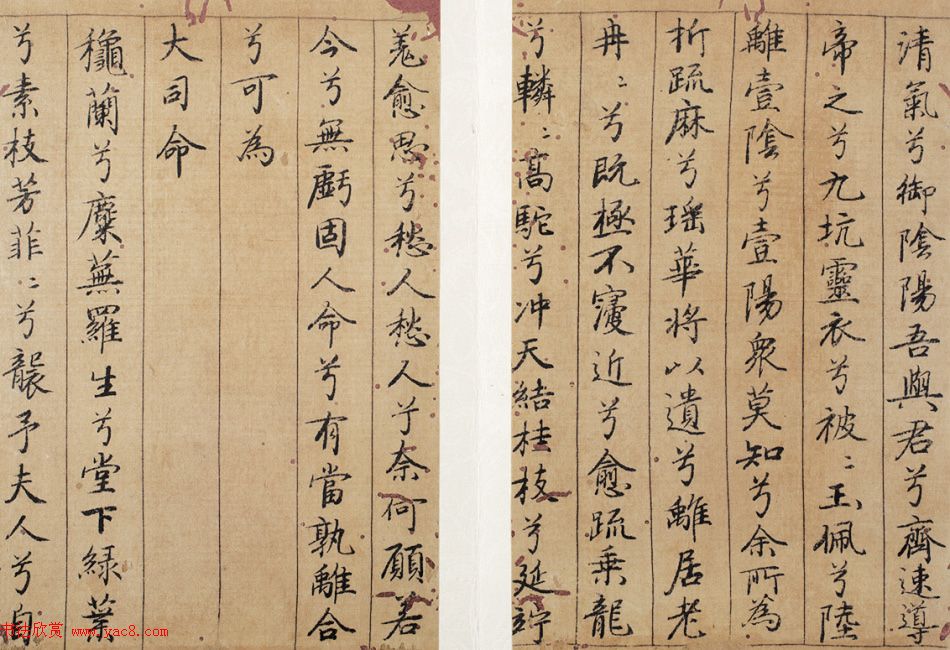 清氣兮御陰陽吾與君兮齊速導
帝之兮九坑靈衣兮被〻玉佩兮陸
離壹陰兮壹陽衆莫知兮余所為
折疏麻兮瑶華将以遺兮離居老
冉〻兮既極不寖近兮愈疏乗龍
兮轔〻高駝兮冲天結桂枝兮延竚
羗愈思兮愁人愁人兮奈何願若
今兮無虧固人命兮有當孰離合
兮可為
大司命
穐蘭兮麋蕪羅生兮堂下緑葉
兮素枝芳菲〻兮襲予夫人兮自
书法欣赏 www.yac8.com